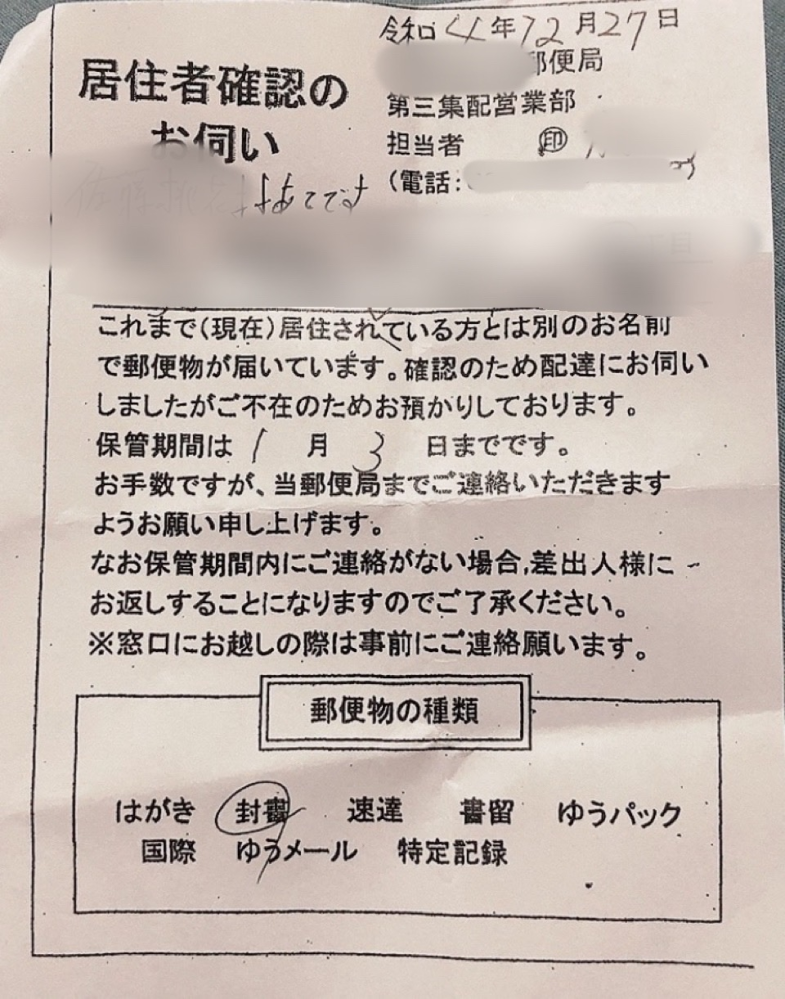 令和 4年12月27日
郵便局
居住者確認の
お伺い
第三集配営業部
担当者 ㊞
(電話:
あてです
これまで(現在)居住されている方とは別のお名前
で郵便物が届いています。確認のため配達にお伺い
しましたがご不在のためお預かりしております。
保管期間は 1 月 3 日までです。
お手数ですが、当郵便局までご連絡いただきます
ようお願い申し上げます。
なお保管期間内にご連絡がない場合,差出人様に
お返しすることになりますのでご了承ください。
※窓口にお越しの際は事前にご連絡願います。
郵便物の種類
はがき 封書 速達 書留 ゆうパック
国際 ゆうメール 特定記録